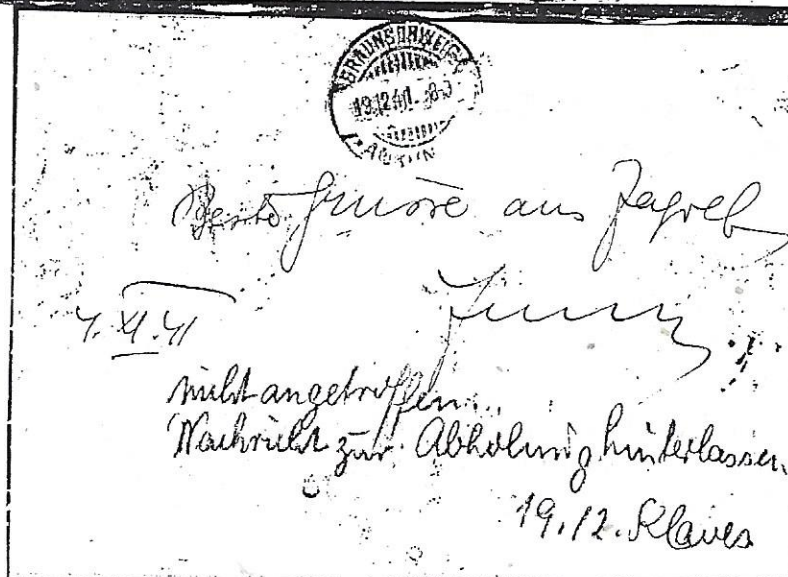 BRAUNSCHWEIG
19.12.41.
Beste Grüsse aus Zagreb
nicht angetroffen.
Nachricht zur Abholung hinterlassen.
19.12. Klaves